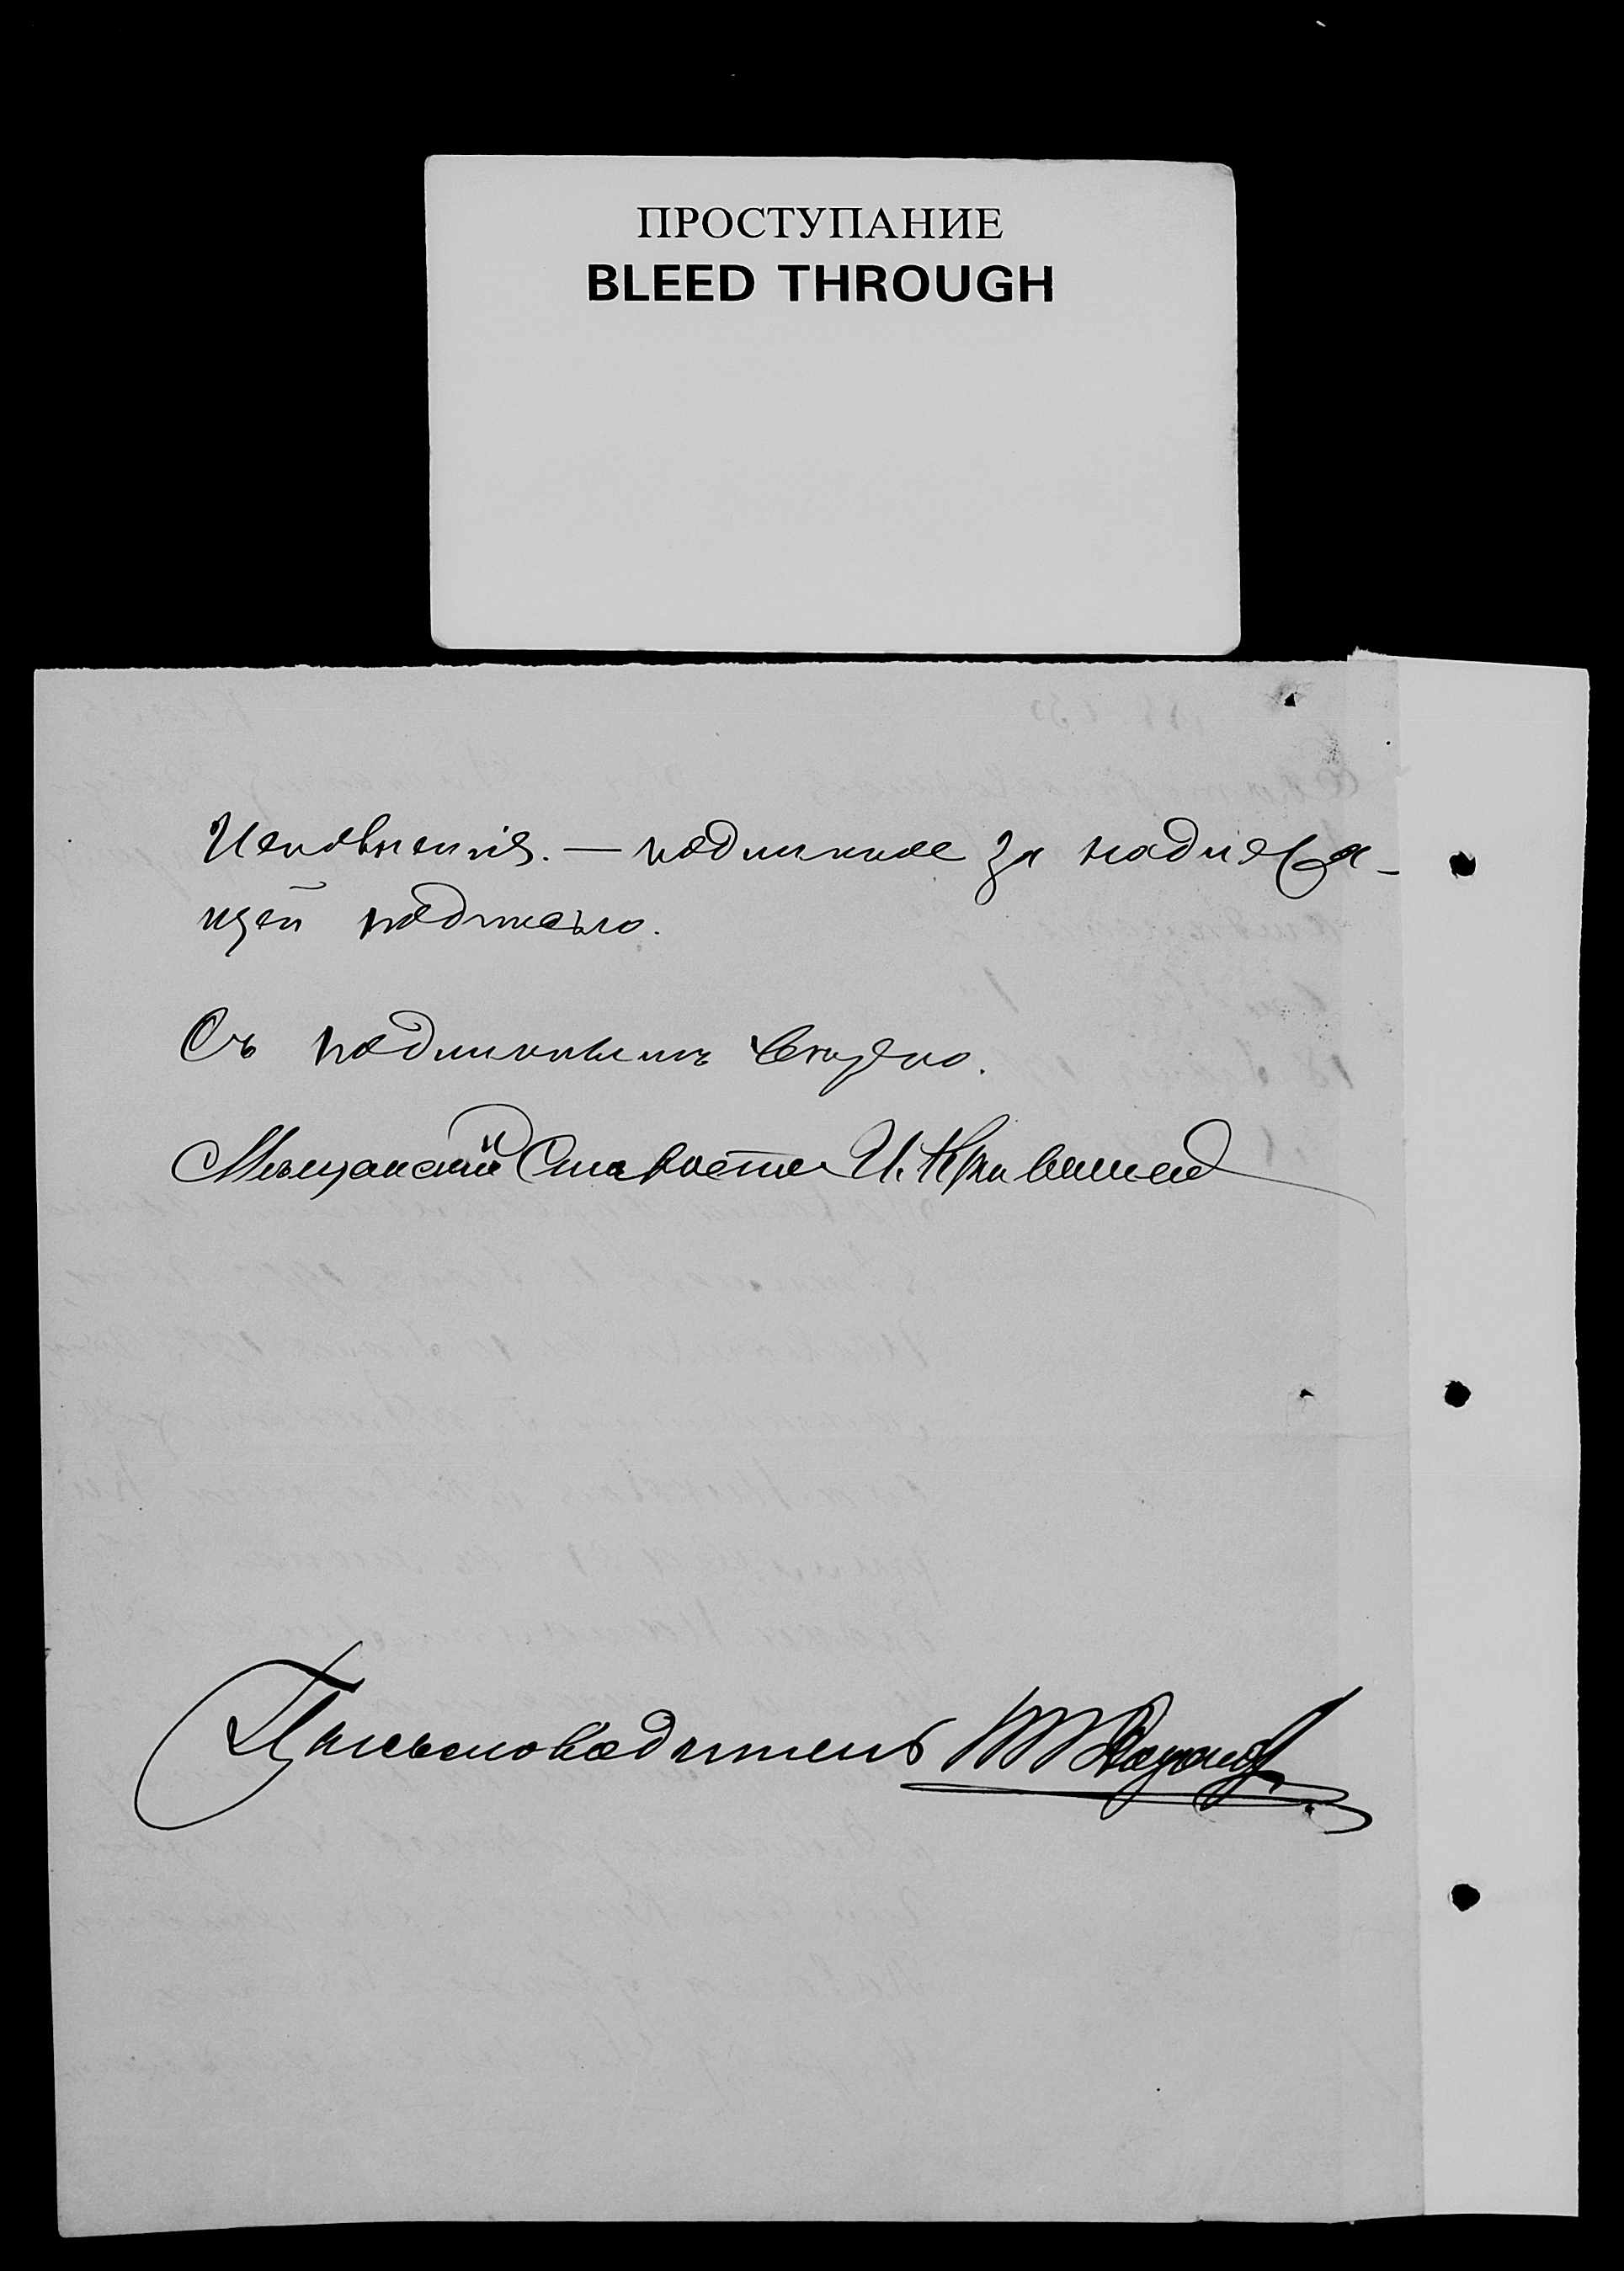 ПРОСТУПАНИЕ
BLEED THROUGH
Исполненія. — подлинное за надлежа-
щей подписью.
Съ подлиннымъ вѣрно.
Мѣщанскій Староста И.
Письмоводитель